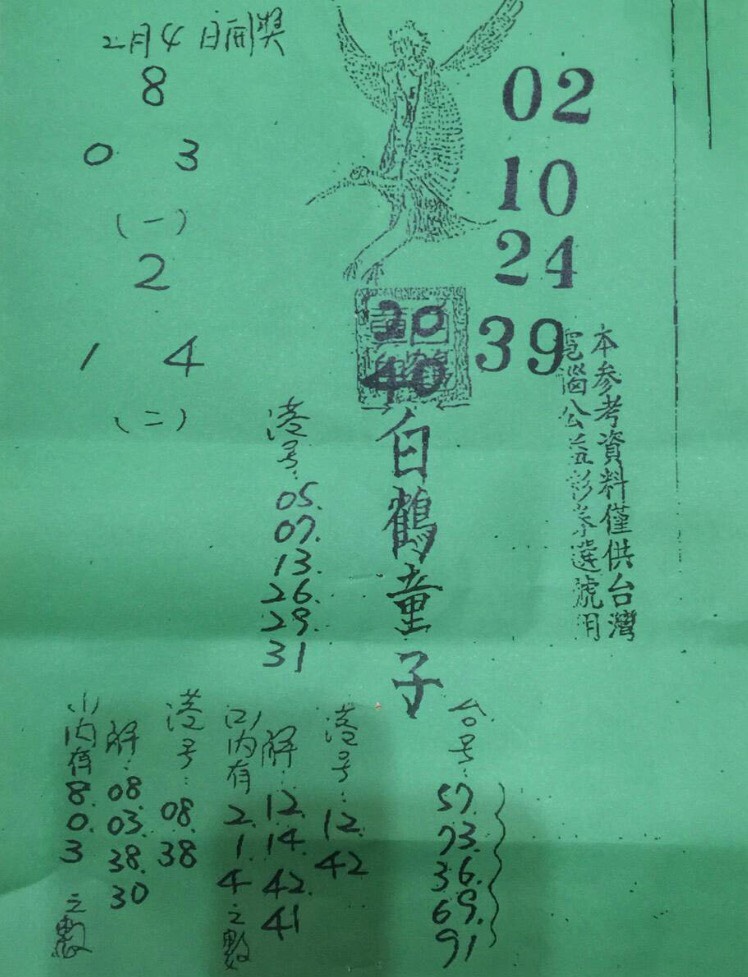 2月4日開獎
8
0 3
(一)
2
1 4
(二)
02
10
24
39
20
40
白鶴童子
本參考資料僅供台灣
電腦公益彩券選號用
港号:
05.
07.
13.
26.
29.
31
台号:
57.
73.
36.
69.
91
港号:
12.
42
解:
12.
14.
42.
41
(2)內有
2.
1.
4
之數
港号:
08.
38
解:
08.
03.
38.
30
(1)內有
8.
0.
3
之數